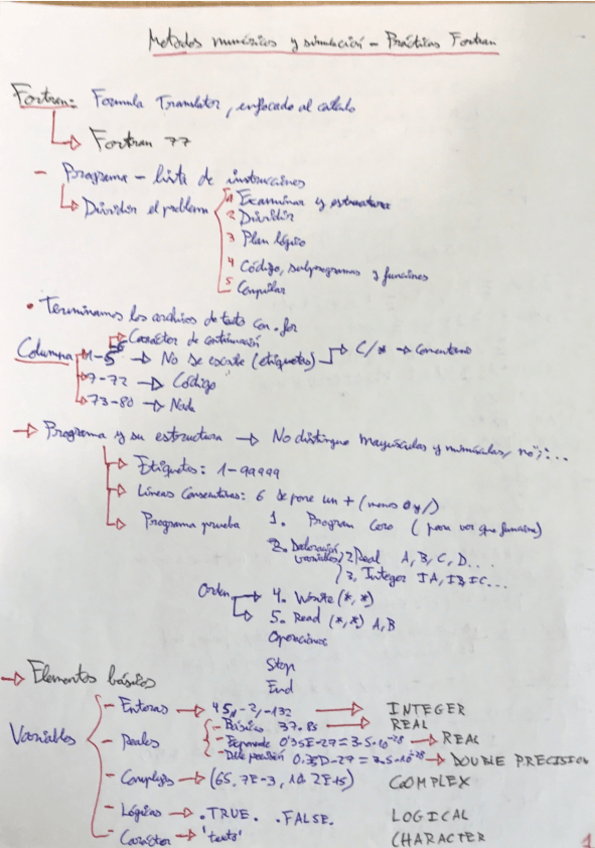 Metodos numéricos y simulación - Prácticas Fortran
Fortran: Formula Translator, enfocado al calculo
Fortran 77
- Programa - lista de instrucciones
Dividir el problema
1 Examinar y estructurar
2 Dividir
3 Plan lógico
4 Código, subprogramas y funciones
5 Compilar
• Terminamos los archivos de texto con .for
6 Carácter de continuación
Columna 1-5 No se escribe (etiquetas) C/* Comentario
7-72 Código
73-80 Nada
Programa y su estructura No distingue mayúsculas y minúsculas, no ; : ...
Etiquetas: 1-99999
Líneas Consecutivas: 6 se pone un + (menos 0 y /)
Programa prueba 1. Program Coro (para ver que funciona)
2. Declaración variables 2 Real A, B, C, D....
3. Integer IA, IB, IC...
Orden 4. Write (*,*)
5. Read (*,*) A,B
Operaciones
Stop
End
Elementos básicos
Variables
- Enteras 45, -2, -132 INTEGER
- Reales - Básico 37.85 REAL
- Exponente 0'35E-27 = 3.5·10⁻²⁸ REAL
- Doble precisión 0.35D-27 = 3.5·10⁻²⁸ DOUBLE PRECISION
- Complejas (65.7E-3, 10.2E+5) COMPLEX
- Lógicas .TRUE. .FALSE. LOGICAL
- Carácter 'texto' CHARACTER
1